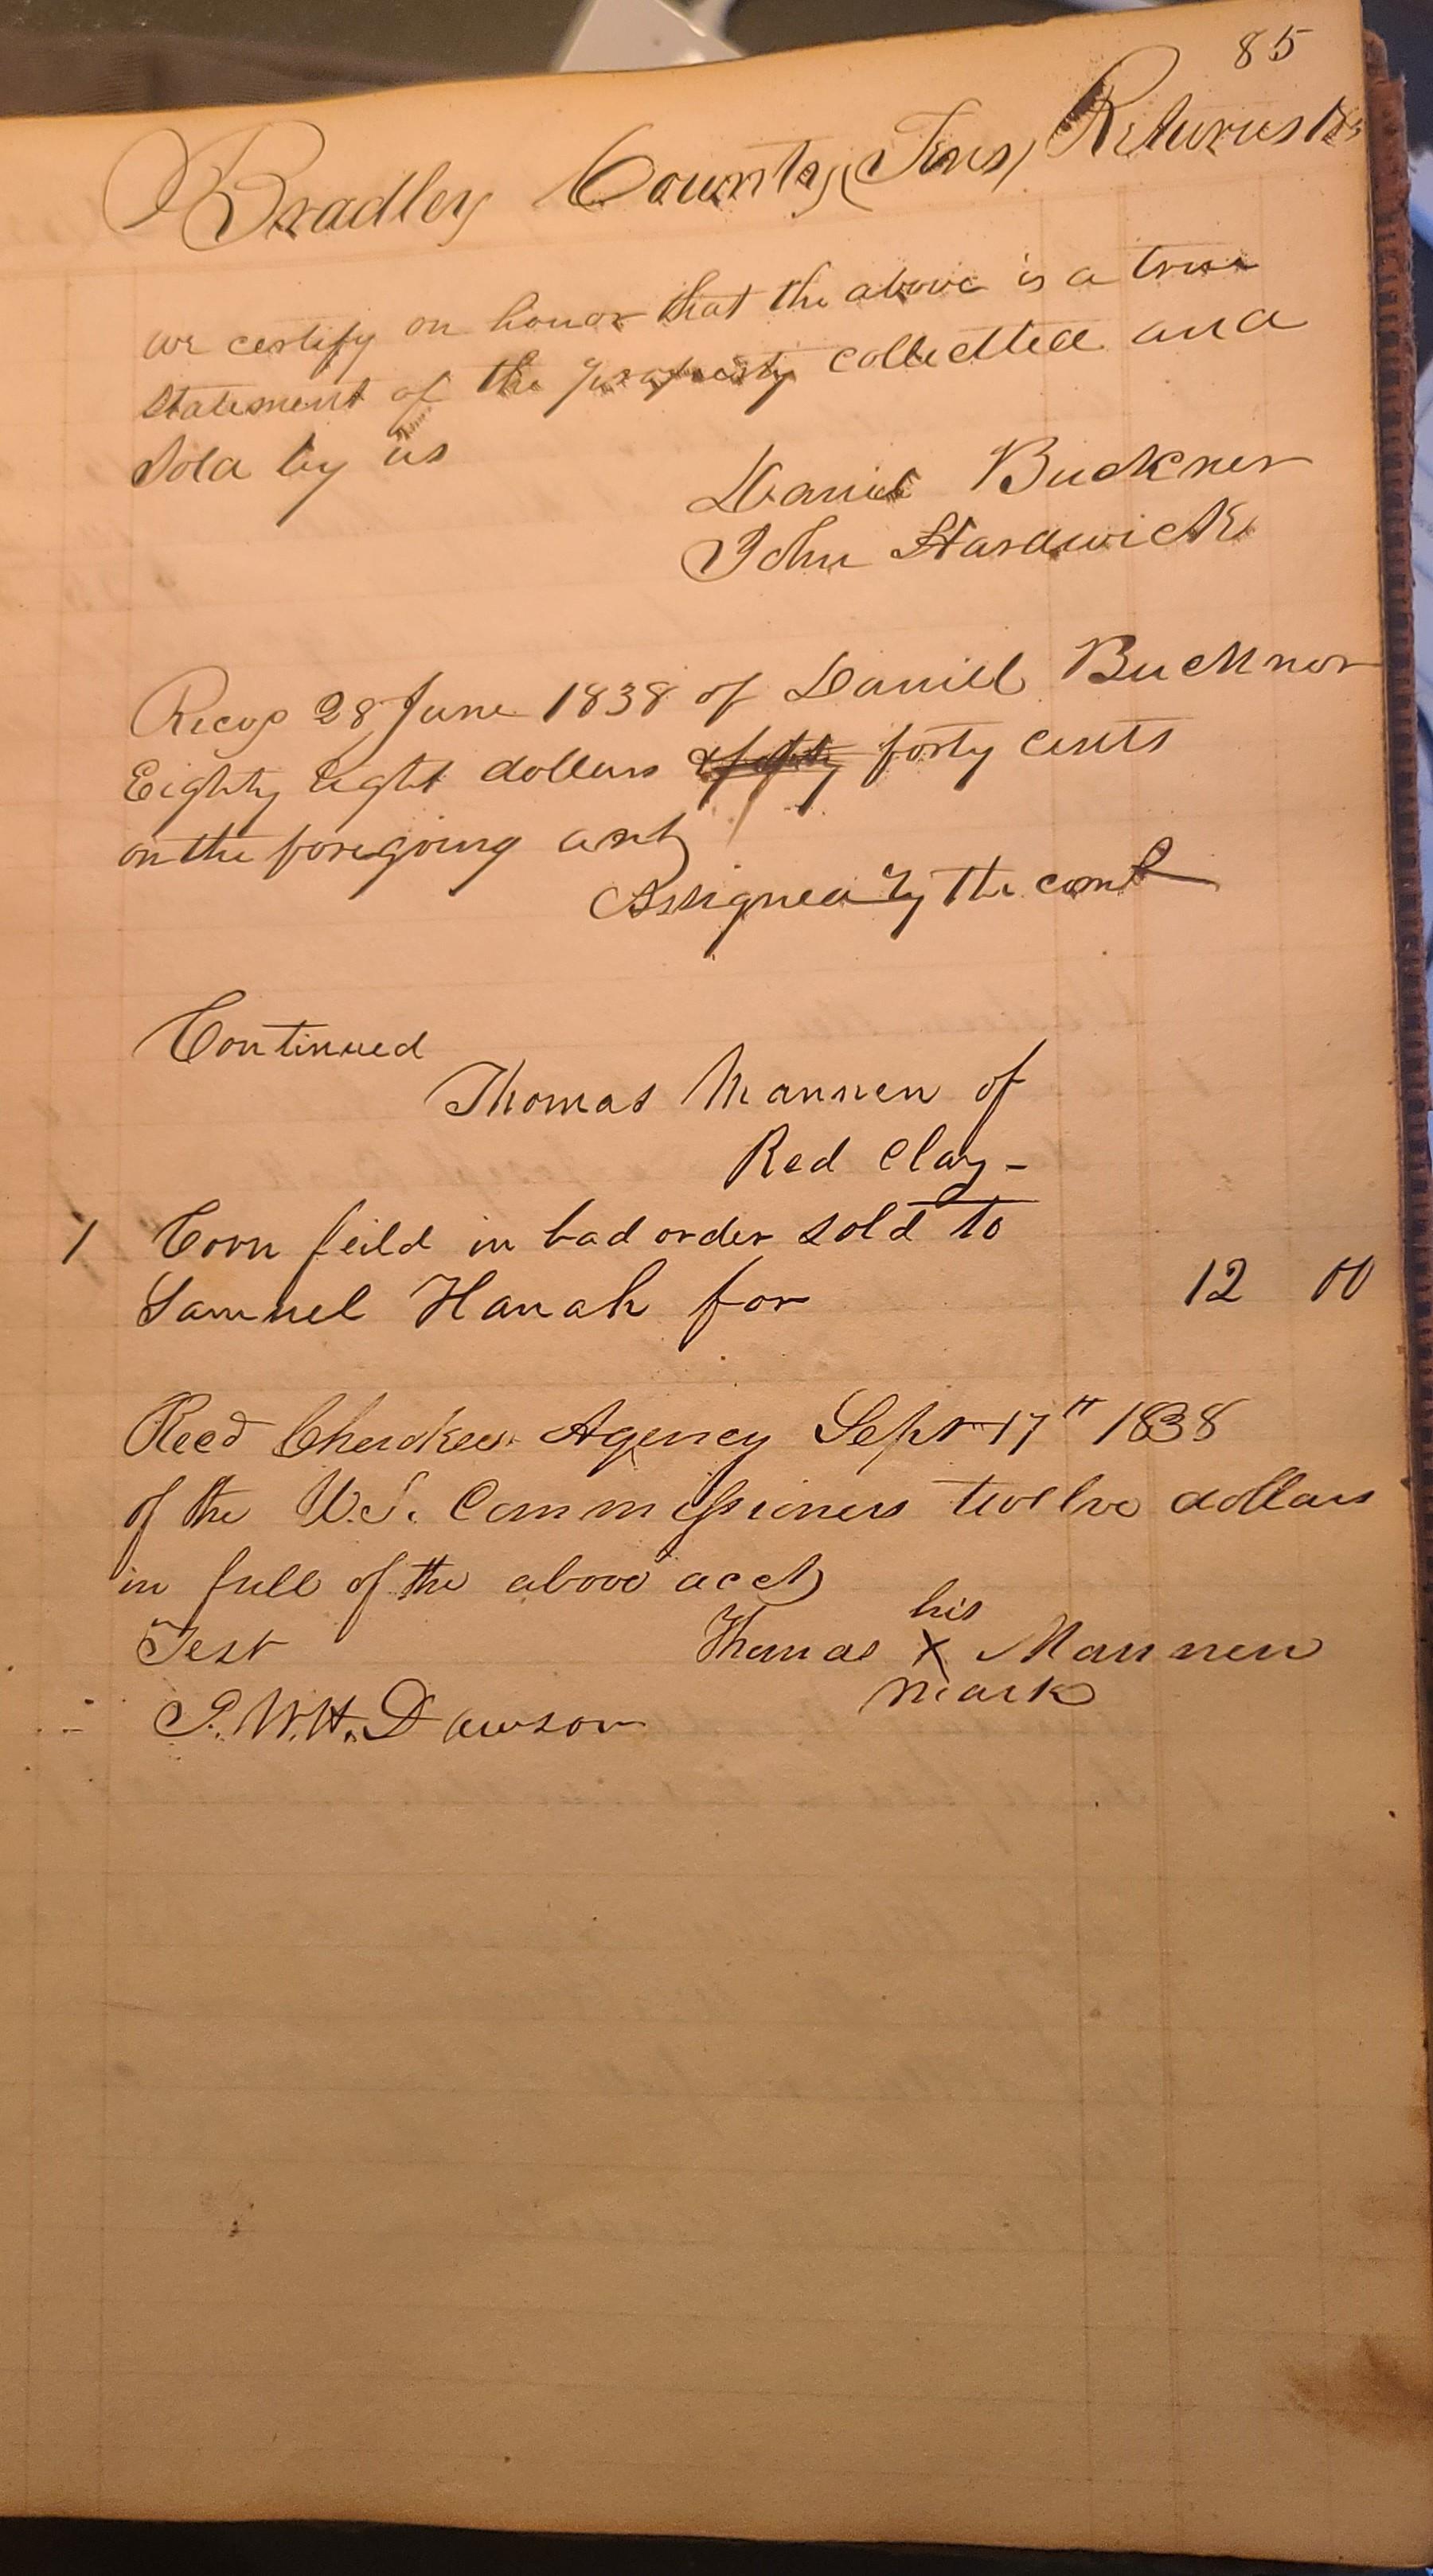 85
Bradley County (Tens) Returns 183
we certify on honor that the above is a true
Statement of the property collected and
Sold by us
Daniel Buckner
John Hardwick
28 June 1838 of Daniel Buckner
Eighty Eight dollars forty cents
on the foregoing acct
Assigned by the
Continued
Thomas Mannen of
Red Clay -
1 Corn feild in bad order sold to
Samuel Hanah for 12 00
Recd Cherokee Agency Sept 17th 1838
of the U.S. Commissioners twelve dollars
in full of the above acct
Test Thomas his X mark Mannen
W.H. Dawson